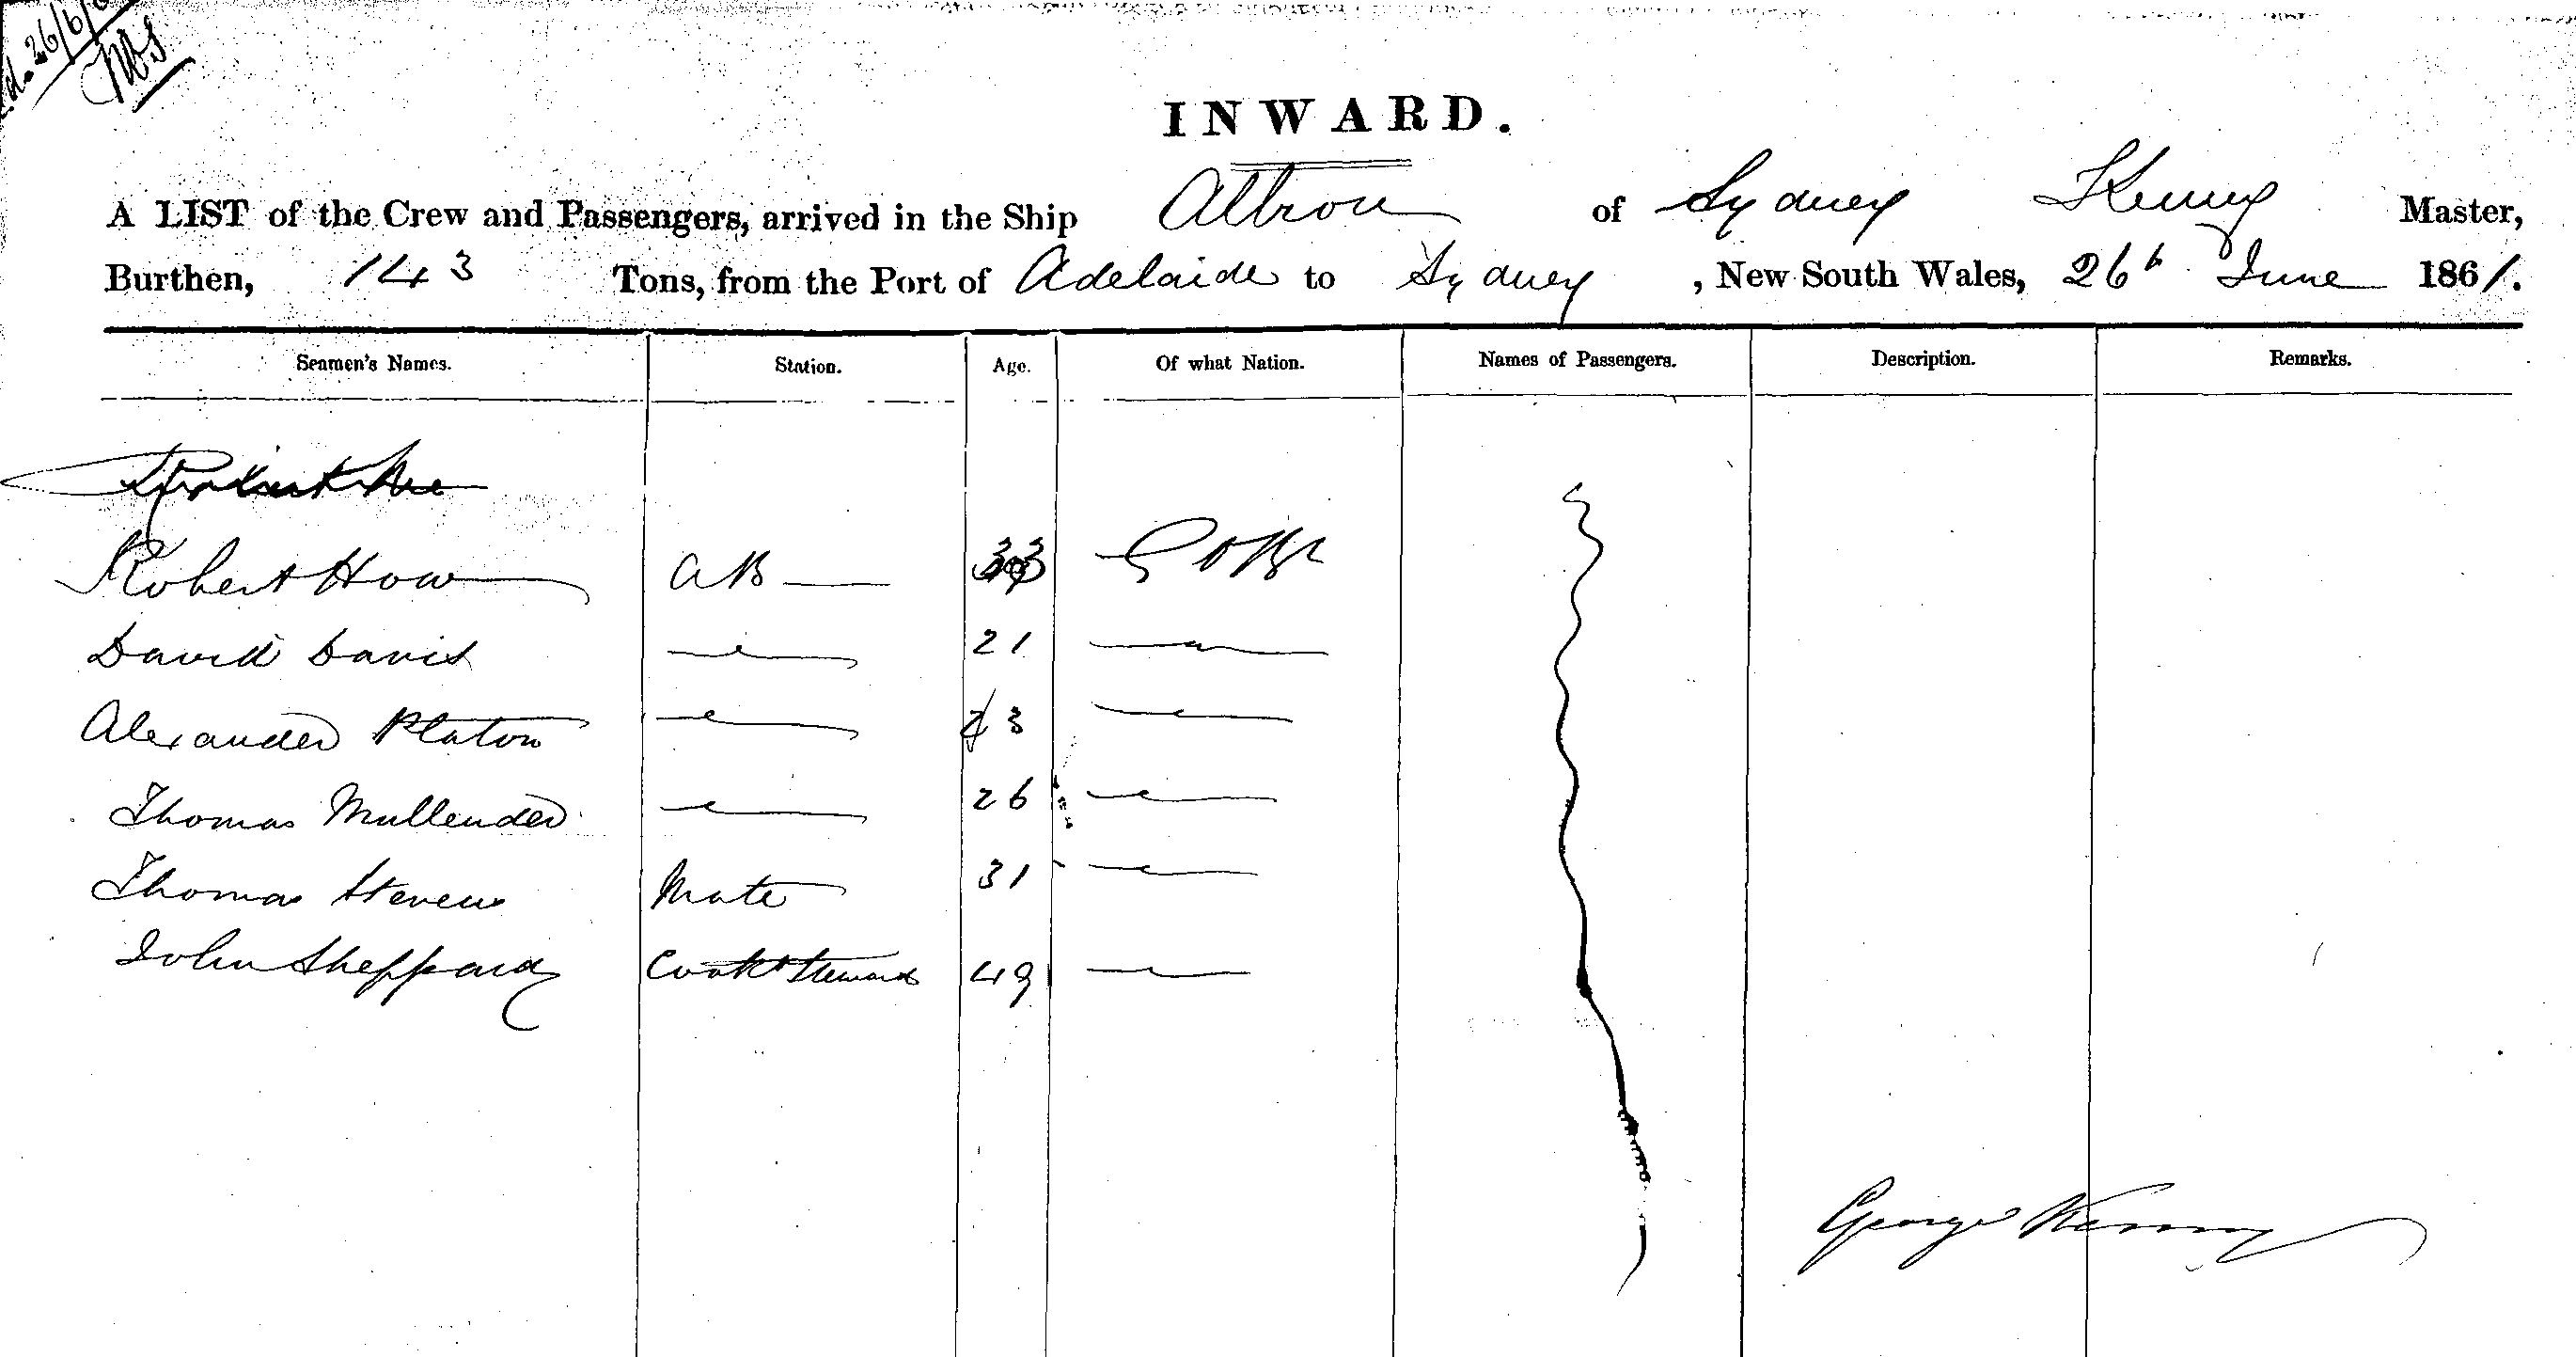 26/6/
INWARD.
A LIST of the Crew and Passengers, arrived in the Ship Albion of Sydney Kenny Master,
Burthen, 143 Tons, from the Port of Adelaide to Sydney, New South Wales, 26th June 1861.
Seamen's Names. Station. Age. Of what Nation. Names of Passengers. Description. Remarks.
Robert How AB 33
David Davis 21
Alexander Platon 23
Thomas Mullender 26
Thomas Stevens Mate 31
John Sheppard Cook & Steward 49
George Kenny